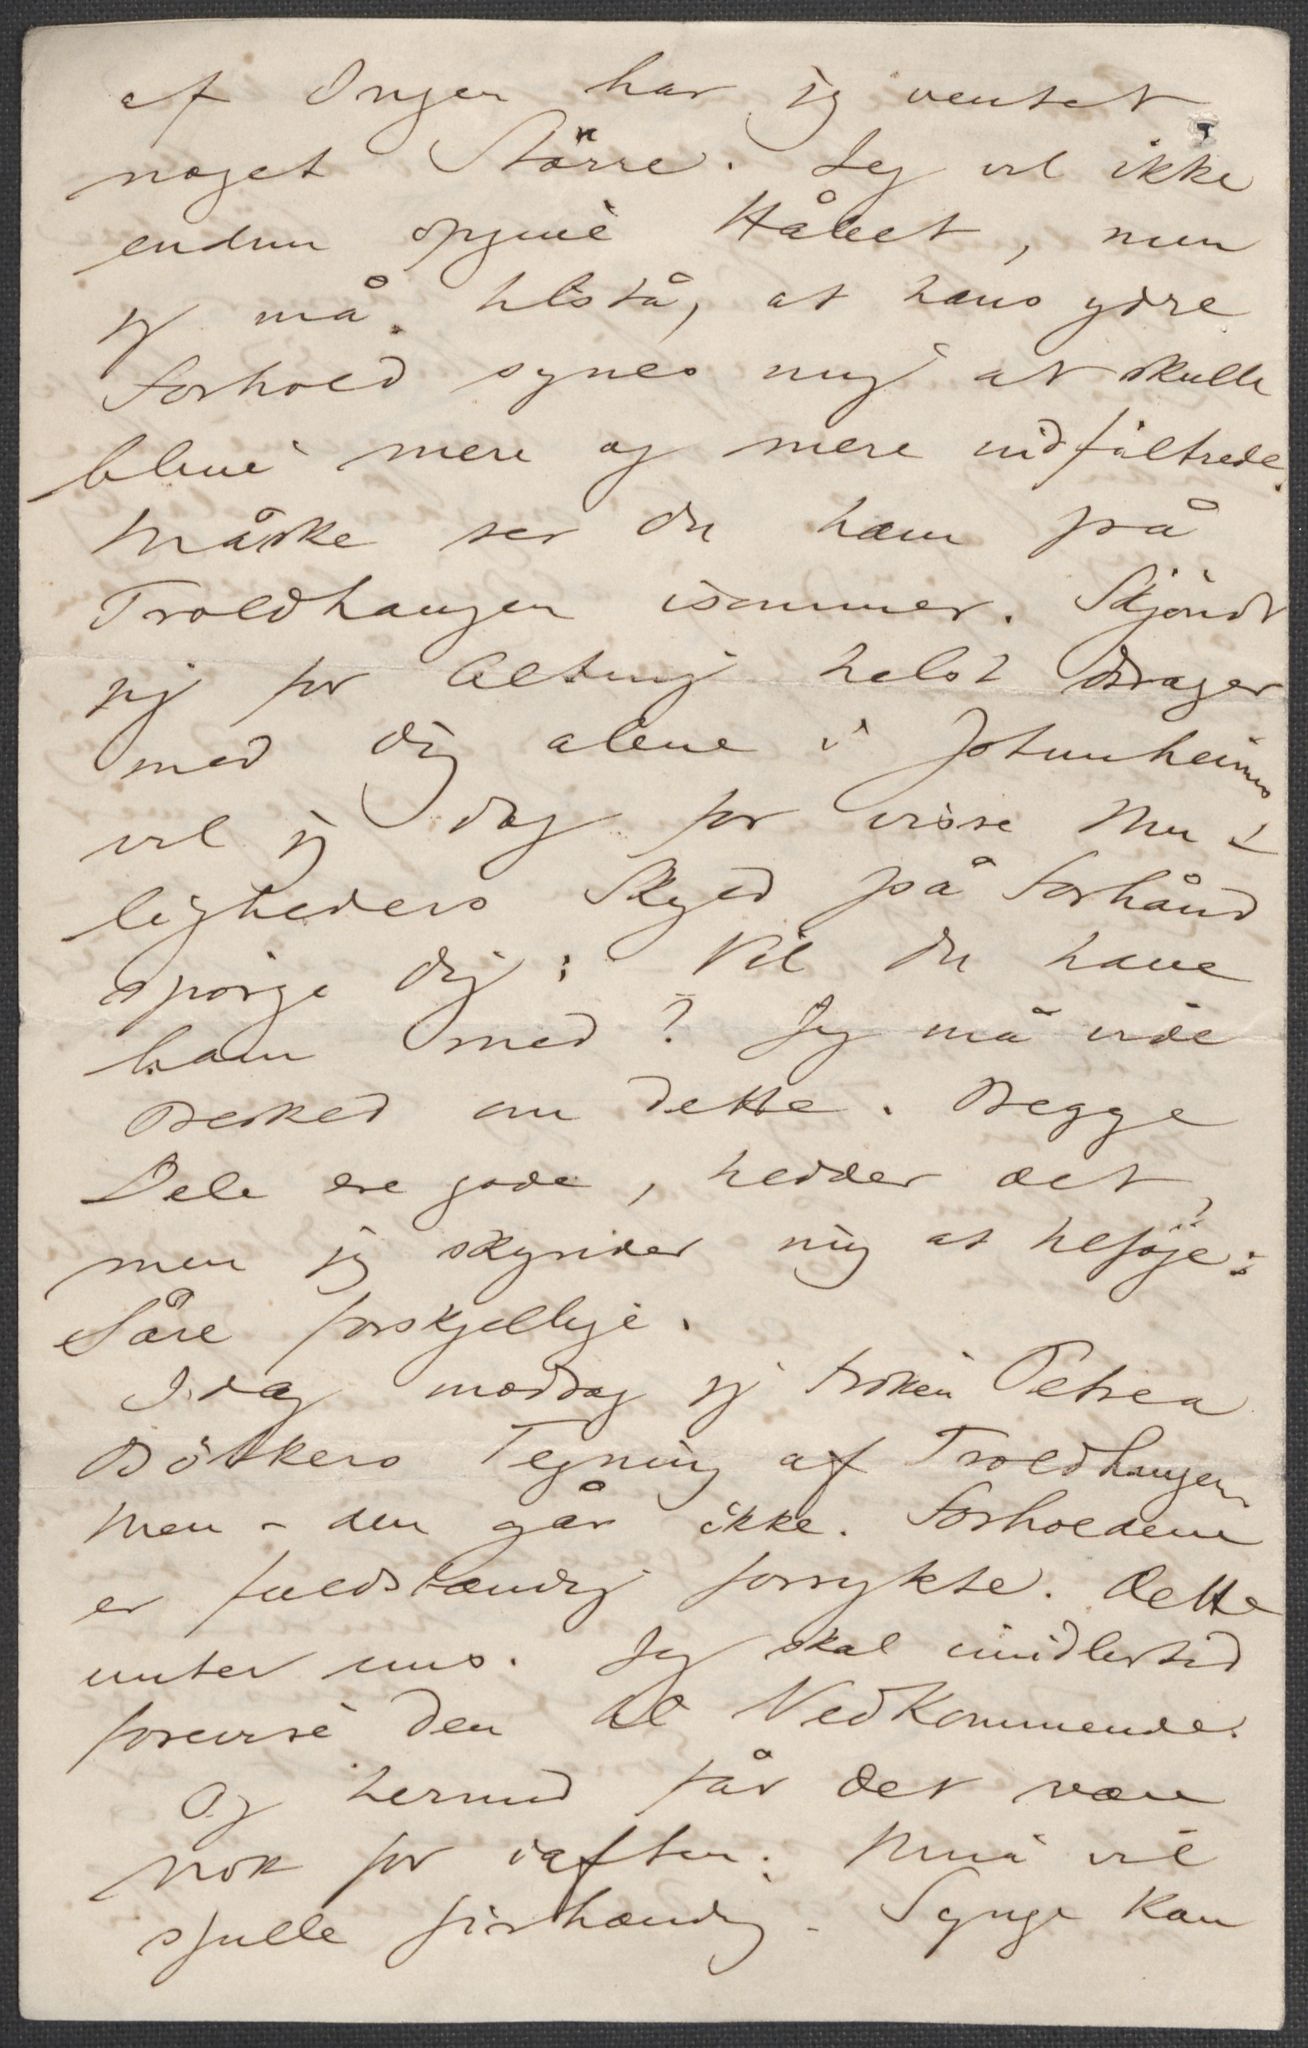 af Ingen har jeg ventet
noget Större. Jeg vil ikke
endnu opgive Håbet, men
jeg må tilstå, at hans ydre
Forhold synes mig at skulle
blive mere og mere indfiltrede.
Måske ser du ham på
Troldhaugen isommer. Skjöndt
jeg for Alting helst drager
med dig alene i Jotunheimen
vil jeg dog for visse Mu-
ligheders Skyld på Forhånd
spörge dig: Vil du have
ham med? Jeg må vide
Besked om dette. Begge
Dele ere gode, hedder det,
men jeg skynder mig at tilföje:
Såre forskjellige.
Idag modtog jeg Fröken Petrea
Bötkers Tegning af Troldhaugen.
Men – den går ikke. Forholdene
er fuldstændig forrykte. Dette
unter uns. Jeg skal imidlertid
forevise den til Vedkommende.
Og hermed får det være
nok for iaften. Nina vil
spille firhændig. Synge kan